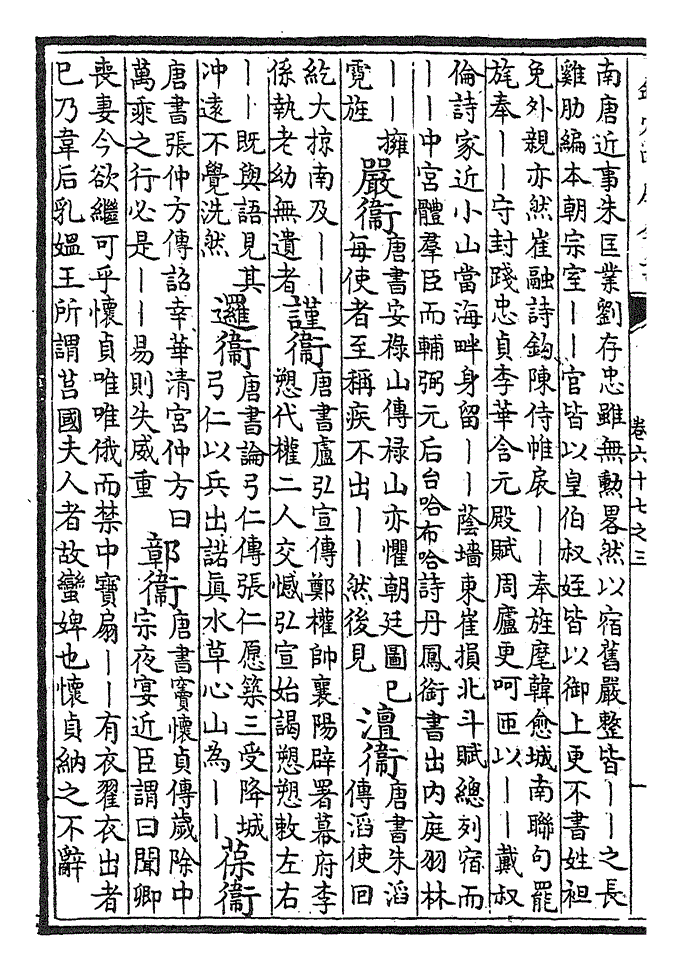 卷六十七之三
一
南唐近事朱匡業劉存忠雖無勲畧然以宿舊嚴整皆——之長
雞肋編本朝宗室——官皆以皇伯叔姪皆以御上更不書姓袒
免外親亦然崔融詩鈎陳侍帷扆——奉旌麾韓愈城南聯句罷
旄奉——守封踐忠貞李華含元殿賦周廬更呵匝以——戴叔
倫詩家近小山當海畔身留——蔭墻東崔損北斗賦總列宿而
——中宮體羣臣而輔弼元后台哈布哈詩丹鳳銜書出內庭羽林
——擁
霓旌
嚴衞
唐書安祿山傳禄山亦懼朝廷圖已
每使者至稱疾不出——然後見
澶衞
唐書朱滔
傳滔使回
紇大掠南及——
係執老幼無遺者
謹衞
唐書盧弘宣傳鄭權帥襄陽辟署幕府李
愬代權二人交憾弘宣始謁愬愬敕左右
——既與語見其
冲遠不覺洗然
邏衞
唐書論弓仁傳張仁愿築三受降城
弓仁以兵出諾真水草心山為——
葆衞
唐書張仲方傳詔幸華清宮仲方曰
萬乘之行必是——易則失威重
鄣衞
唐書竇懷貞傳歲除中
宗夜宴近臣謂曰聞卿
喪妻今欲繼可乎懷貞唯唯俄而禁中寶扇——有衣翟衣出者
已乃韋后乳媼王所謂莒國夫人者故蠻婢也懷貞納之不辭